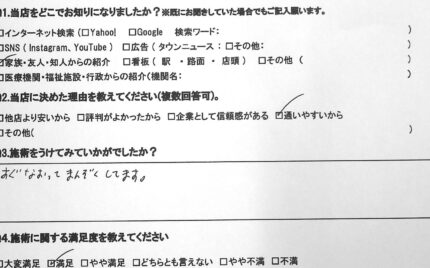 1.当店をどこでお知りになりましたか？※既にお聞きしていた場合でもご記入願います。
□インターネット検索（□Yahoo! □Google 検索ワード： ）
□SNS（Instagram、YouTube） □広告（タウンニュース；□その他： ）
☑家族・友人・知人からの紹介 □看板（ 駅 ・路面 ・ 店頭 ） □その他（ ）
□医療機関・福祉施設・行政からの紹介（機関名：
2.当店に決めた理由を教えてください（複数回答可）。
□他店より安いから □評判がよかったから □企業として信頼感がある ☑通いやすいから
□その他（ ）
3.施術をうけてみていかがでしたか？
すぐなおって まんぞくしてます。
4.施術に関する満足度を教えてください
□大変満足 ☑満足 □やや満足 □どちらとも言えない □やや不満 □不満